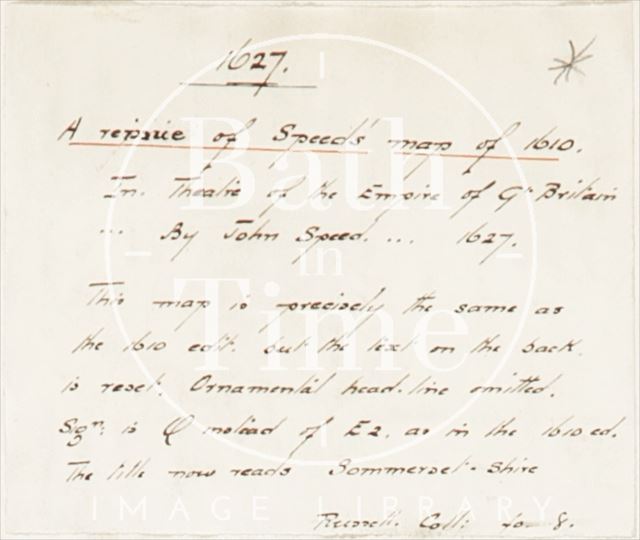 1627.
A reissue of Speed's map of 1610.
In. Theatre of the Empire of Gt Britain
... By John Speed. ... 1627.
This map is precisely the same as
the 1610 edit. but the text on the back.
is reset. Ornamental head-line omitted.
Sigr. is Q instead of E2. as in the 1610 ed.
The title now reads Sommerset-shire
Coll: fo 8.
Bath
in
Time
IMAGE LIBRARY